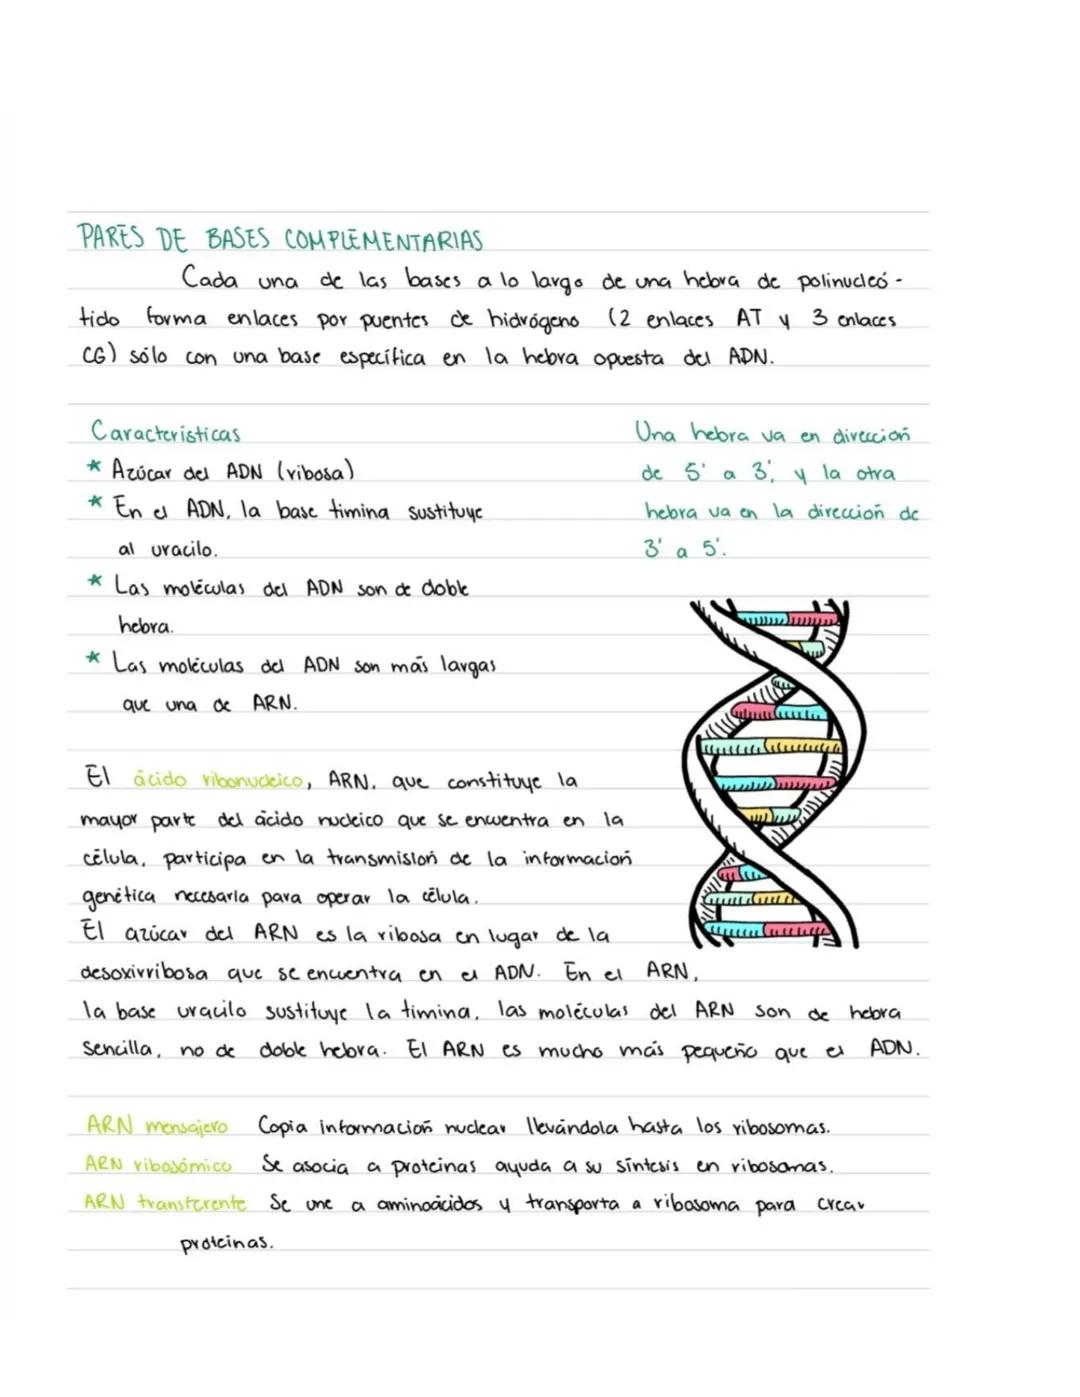 PARES DE BASES COMPLEMENTARIAS
Cada una de las bases a lo largo de una hebra de polinucleó-
tido forma enlaces por puentes de hidrógeno (2 enlaces AT y 3 enlaces
CG) sólo con una base específica en la hebra opuesta del ADN.
Características
* Azúcar del ADN (ribosa)
* En el ADN, la base timina sustituye
al uracilo.
* Las moléculas del ADN son de doble
hebra.
* Las moléculas del ADN son más largas
que una de ARN.
Una hebra va en dirección
de 5' a 3', y la otra
hebra va en la dirección de
3' a 5'.
El ácido ribonucleico, ARN, que constituye la
mayor parte del ácido nucleico que se encuentra en la
célula, participa en la transmisión de la información
genética necesaria para operar la célula.
El azúcar del ARN es la ribosa en lugar de la
desoxirribosa que se encuentra en el ADN. En el ARN,
la base uracilo sustituye la timina, las moléculas del ARN son de hebra
sencilla, no de doble hebra. El ARN es mucho más pequeño que el ADN.
ARN mensajero Copia información nuclear llevándola hasta los ribosomas.
ARN ribosómico Se asocia a proteinas ayuda a su síntesis en ribosomas.
ARN transferente Se une a aminoácidos y transporta a ribosoma para crear
proteinas.